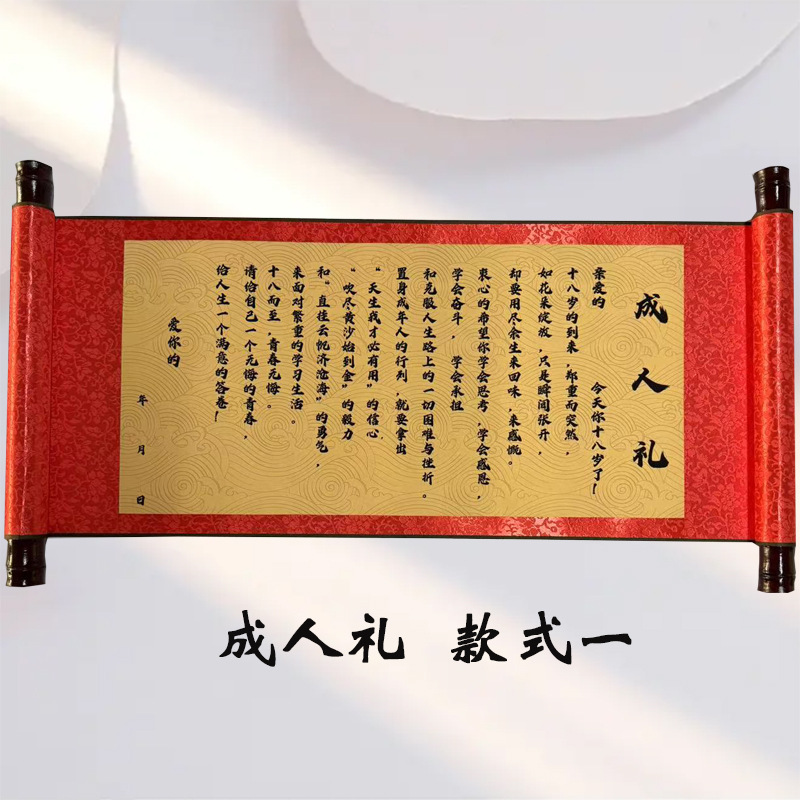 成人礼
亲爱的 今天你十八岁了！
十八岁的到来，郑重而突然，
如花朵绽放，只是瞬间张开，
却要用尽余生来回味，来感慨。
衷心的希望你学会思考，学会感恩，
学会奋斗， 学会承担
和克服人生路上的一切困难与挫折。
置身成年人的行列，就要拿出
“天生我才必有用”的信心
“吹尽黄沙始到金”的毅力
和“直挂云帆济沧海”的勇气，
来面对繁重的学习生活。
十八而至，青春无悔。
请给自己一个无悔的青春，
给人生一个满意的答卷！
爱你的
年 月 日
成人礼 款式一